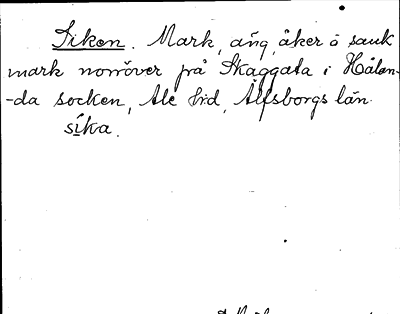 Siken. Mark, äng, åker o sank
mark norröver på Skaggata i Hålan-
-da socken, Ale hrd, Älfsborgs län.
sika.